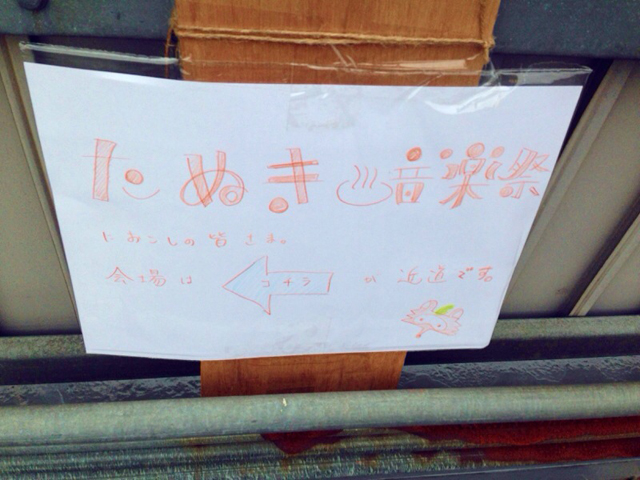 たぬき♨音楽祭
におこしの皆さま。
会場は コチラ が 近道です。